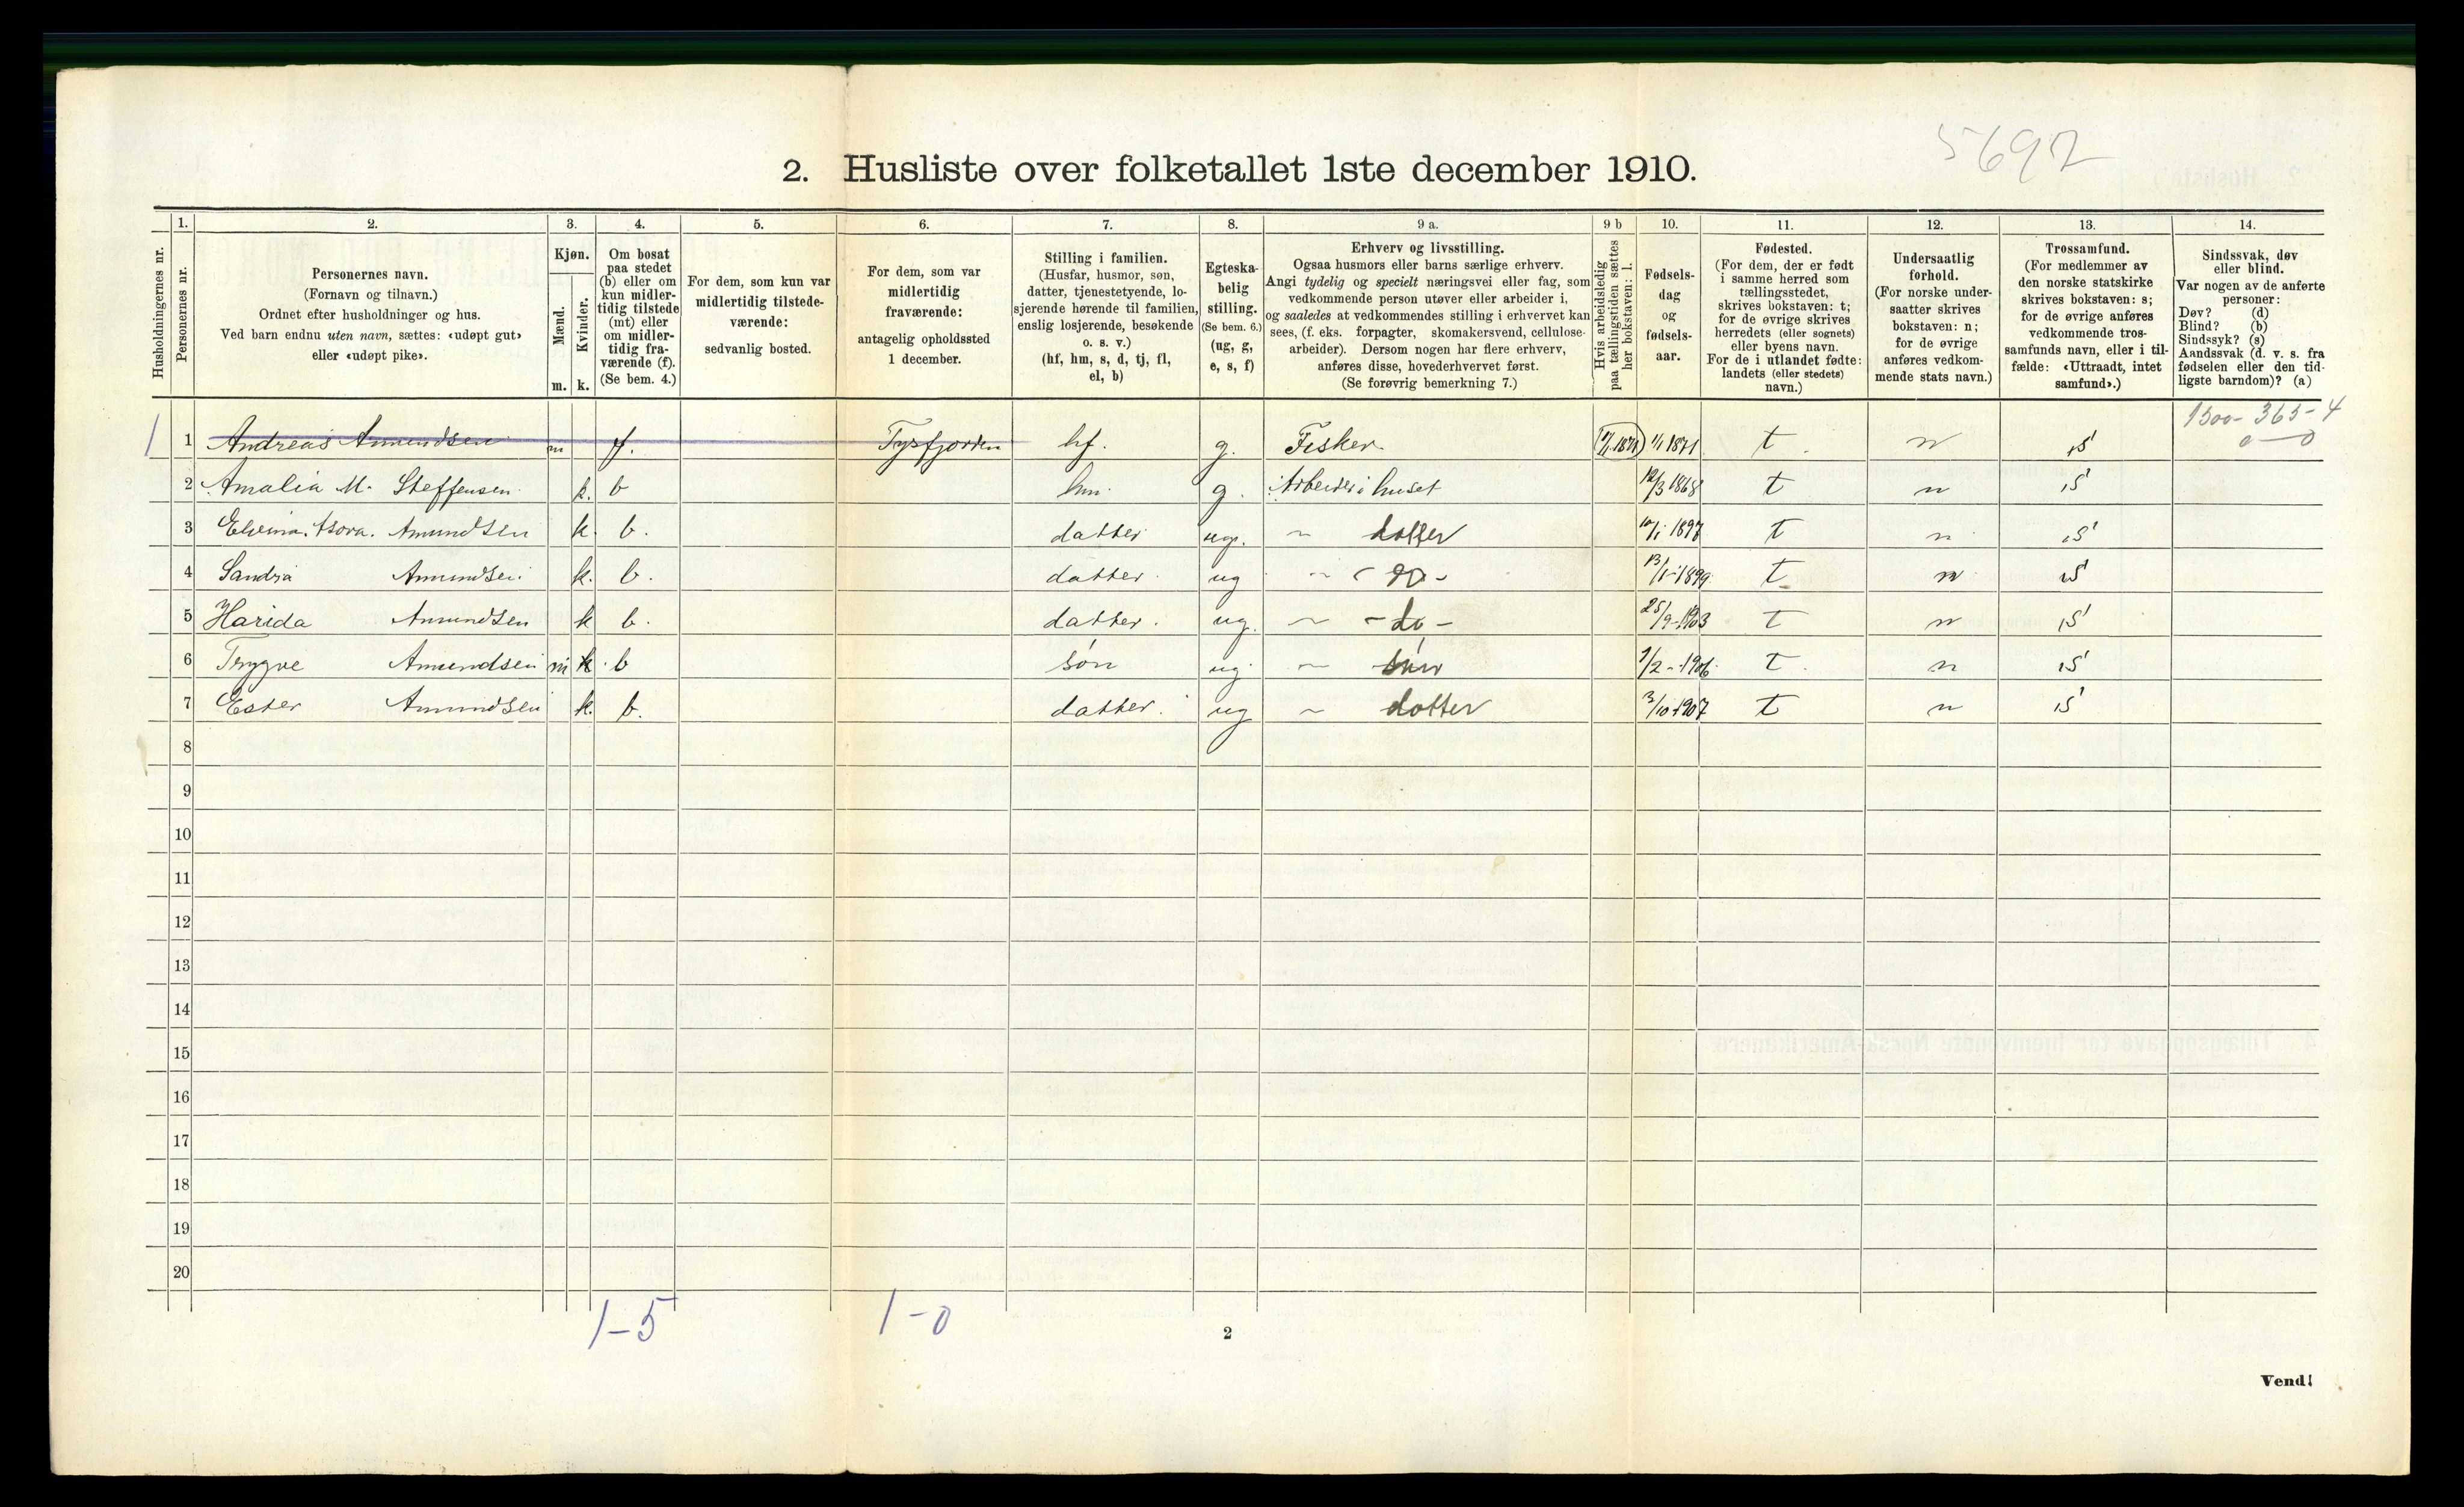 5692
2. Husliste over folketallet 1ste december 1910.
1. 2. 3. 4. 5. 6. 7. 8. 9 a. 9 b 10. 11. 12. 13. 14.
Husholdningernes nr.
Personernes nr.
Personernes navn.
(Fornavn og tilnavn.)
Ordnet efter husholdninger og hus.
Ved barn endnu uten navn, sættes: «udøpt gut»
eller «udøpt pike».
Kjøn.
Mænd.
Kvinder.
m. k.
Om bosat
paa stedet
(b) eller om
kun midler-
tidig tilstede
(mt) eller
om midler-
tidig fra-
værende (f).
(Se bem. 4.)
For dem, som kun var
midlertidig tilstede-
værende:
sedvanlig bosted.
For dem, som var
midlertidig
fraværende:
antagelig opholdssted
1 december.
Stilling i familien.
(Husfar, husmor, søn,
datter, tjenestetyende, lo-
sjerende hørende til familien,
enslig losjerende, besøkende
o. s. v.)
(hf, hm, s, d, tj, fl,
el, b)
Egteska-
belig
stilling.
(Se bem. 6.)
(ug, g,
e, s, f)
Erhverv og livsstilling.
Ogsaa husmors eller barns særlige erhverv.
Angi tydelig og specielt næringsvei eller fag, som
vedkommende person utøver eller arbeider i,
og saaledes at vedkommendes stilling i erhvervet kan
sees, (f. eks. forpagter, skomakersvend, cellulose-
arbeider). Dersom nogen har flere erhverv,
anføres disse, hovederhvervet først.
(Se forøvrig bemerkning 7.)
Hvis arbeidsledig
paa tællingstiden sættes
her bokstaven: l.
Fødsels-
dag
og
fødsels-
aar.
Fødested.
(For dem, der er født
i samme herred som
tællingsstedet,
skrives bokstaven: t;
for de øvrige skrives
herredets (eller sognets)
eller byens navn.
For de i utlandet fødte:
landets (eller stedets)
navn.)
Undersaatlig
forhold.
(For norske under-
saatter skrives
bokstaven: n;
for de øvrige
anføres vedkom-
mende stats navn.)
Trossamfund.
(For medlemmer av
den norske statskirke
skrives bokstaven: s;
for de øvrige anføres
vedkommende tros-
samfunds navn, eller i til-
fælde: «Uttraadt, intet
samfund».)
Sindssvak, døv
eller blind.
Var nogen av de anførte
personer:
Døv? (d)
Blind? (b)
Sindssyk? (s)
Aandssvak (d. v. s. fra
fødselen eller den tid-
ligste barndom)? (a)
1500-365-4
0—0
1 1 Andreas Amundsen m f. Tysfjorden hf. g. Fisker 1/1 1871 t n s
2 Amalia M. Steffensen k. b hm. g. Arbeider i huset 12/3 1868 t n s
3 Elvina Amundsen k. b. datter ug. ~ datter 10/1 1897 t n s
4 Sandra Amundsen k. b. datter ug ~ - do - 13/1-1899 t n s
5 Harida Amundsen k b. datter ug. ~ - do - 25/9-1903 t n s
6 Trygve Amundsen m b søn ug ~ søn 1/2-1906 t n s
7 Ester Amundsen k. b. datter ug ~ datter 3/10-1907 t n s
8
9
10
11
12
13
14
15
16
17
18
19
20
1-5 1-0
2
Vend!